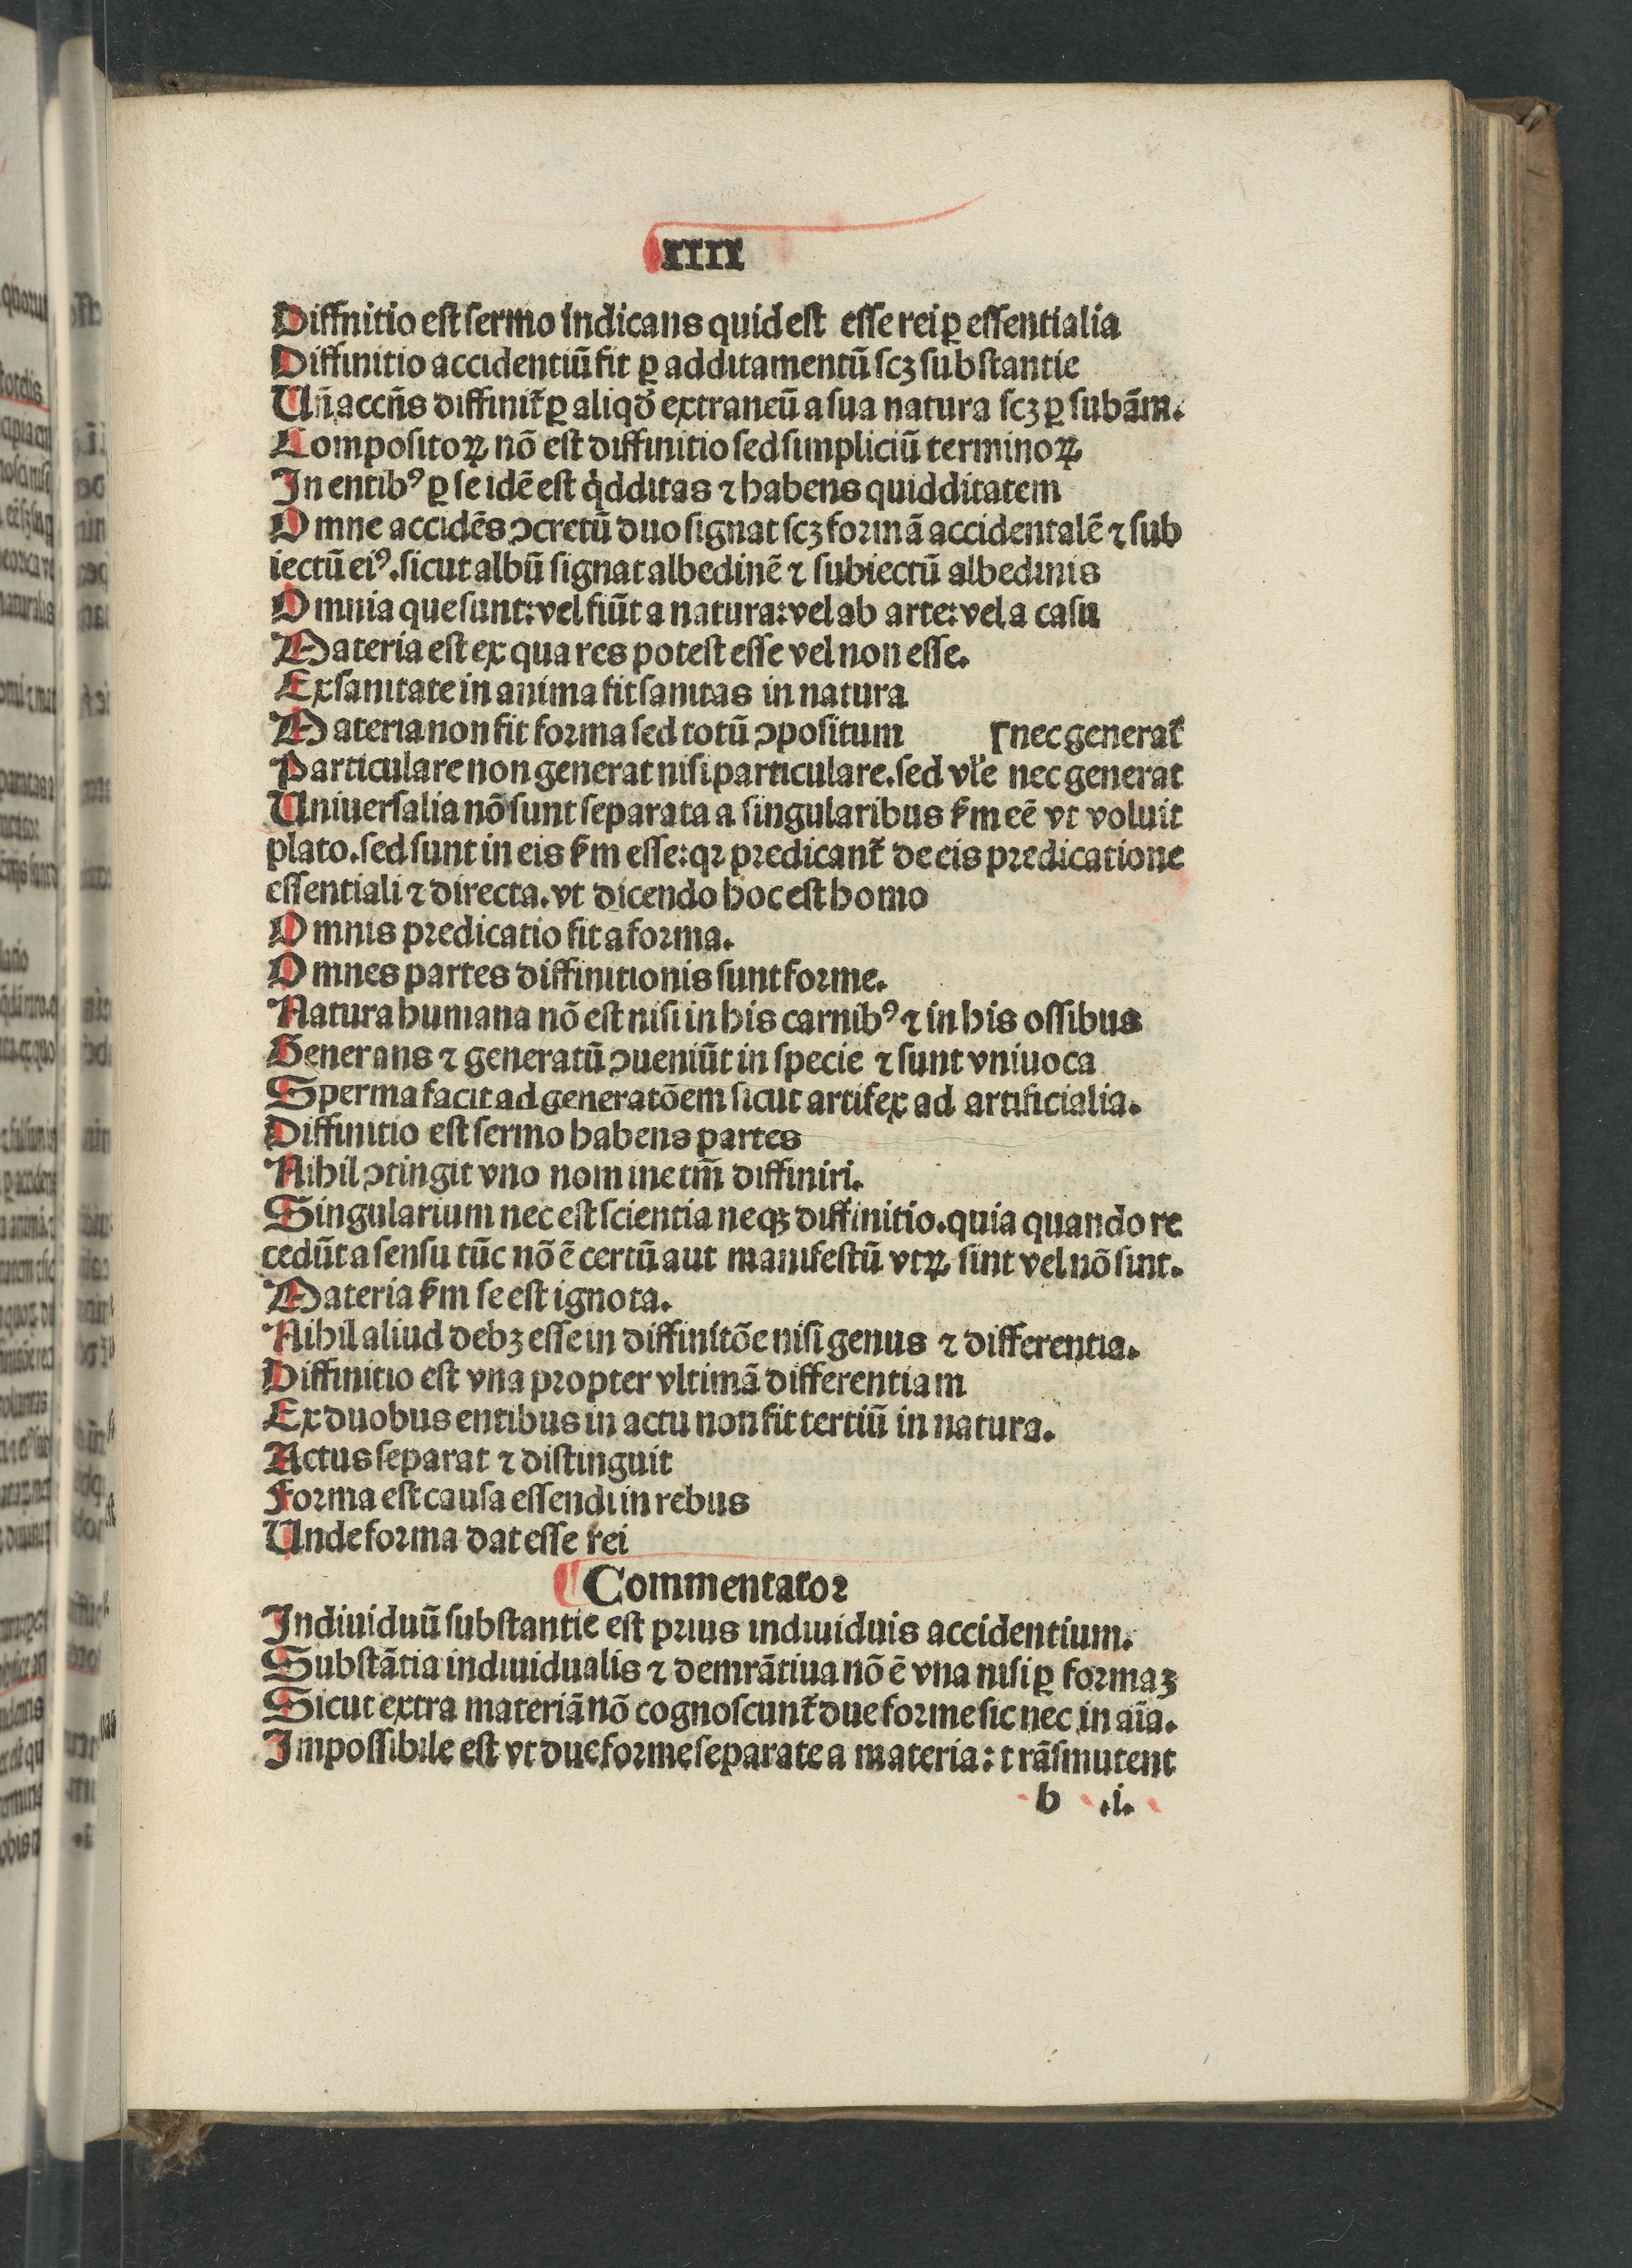 IIII
Diffnitio est sermo indicans quid est esse rei ꝑ essentialia
Diffinitio accidentiū fit ꝑ additamentū scꝫ substantie
Vñ accñs diffinit᷑ ꝑ aliqđ extraneū a sua natura scꝫ ꝑ subām.
Compositoꝝ nō est diffinitio sed simpliciū terminoꝝ
In entibꝰ ꝑ se idē est qͥdditas ⁊ habens quidditatem
Omne accidēs ↄcretū duo signat scꝫ formā accidentalē ⁊ sub
iectū eiꝰ. sicut albū signat albedinē ⁊ subiectū albedinis
Omnia que sunt: vel fiūt a natura: vel ab arte: vel a casu
Materia est ex qua res potest esse vel non esse.
Ex sanitate in anima fit sanitas in natura
Materia non fit forma sed totū ↄpositum ┌nec generat᷑
Particulare non generat nisi particulare. sed vl̓e nec generat
Uniuersalia nō sunt separata a singularibus ẜm eē vt voluit
plato. sed sunt in eis ẜm esse: qꝛ predicant᷑ de eis predicatione
essentiali ⁊ directa. vt dicendo hoc est homo
Omnis predicatio fit a forma.
Omnes partes diffinitionis sunt forme.
Natura humana nō est nisi in his carnibꝰ ⁊ in his ossibus
Generans ⁊ generatū ↄueniūt in specie ⁊ sunt vniuoca
Sperma facit ad generatōem sicut artifex ad artificialia.
Diffinitio est sermo habens partes
Nihil ↄtingit vno nomine tm̄ diffiniri.
Singularium nec est scientia neqꝫ diffinitio. quia quando re
cedūt a sensu tūc nō ē certū aut manifestū vtꝝ sint vel nō sint.
Materia ẜm se est ignota.
Nihil aliud debꝫ esse in diffinitōe nisi genus ⁊ differentia.
Diffinitio est vna propter vltimā differentiam
Ex duobus entibus in actu non fit tertiū in natura.
Actus separat ⁊ distinguit
Forma est causa essendi in rebus
Unde forma dat esse rei
Commentator
Indiuiduū substantie est prius indiuiduis accidentium.
Substātia indiuidualis ⁊ demrātiua nō ē vna nisi ꝑ formaꝫ
Sicut extra materiā nō cognoscunt᷑ due forme sic nec in aīa.
Impossibile est vt due forme separate a materia: trāsmutent
b .i.